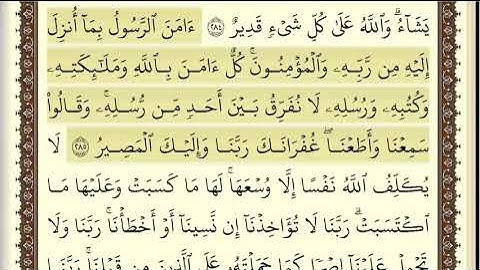 يَشَآءُۗ وَٱللَّهُ عَلَىٰ كُلِّ شَىۡءٖ قَدِيرٌ ٢٨٤ ءَامَنَ ٱلرَّسُولُ بِمَآ أُنزِلَ
إِلَيۡهِ مِن رَّبِّهِۦ وَٱلۡمُؤۡمِنُونَۚ كُلٌّ ءَامَنَ بِٱللَّهِ وَمَلَٰٓئِكَتِهِۦ
وَكُتُبِهِۦ وَرُسُلِهِۦ لَا نُفَرِّقُ بَيۡنَ أَحَدٖ مِّن رُّسُلِهِۦۚ وَقَالُواْ
سَمِعۡنَا وَأَطَعۡنَاۖ غُفۡرَانَكَ رَبَّنَا وَإِلَيۡكَ ٱلۡمَصِيرُ ٢٨٥ لَا
يُكَلِّفُ ٱللَّهُ نَفۡسًا إِلَّا وُسۡعَهَاۚ لَهَا مَا كَسَبَتۡ وَعَلَيۡهَا مَا
ٱكۡتَسَبَتۡۗ رَبَّنَا لَا تُؤَاخِذۡنَآ إِن نَّسِينَآ أَوۡ أَخۡطَأۡنَاۚ رَبَّنَا وَلَا
تَحۡمِلۡ عَلَيۡنَآ إِصۡرٗا كَمَا حَمَلۡتَهُۥ عَلَى ٱلَّذِينَ مِن قَبۡلِنَاۚ رَبَّنَا